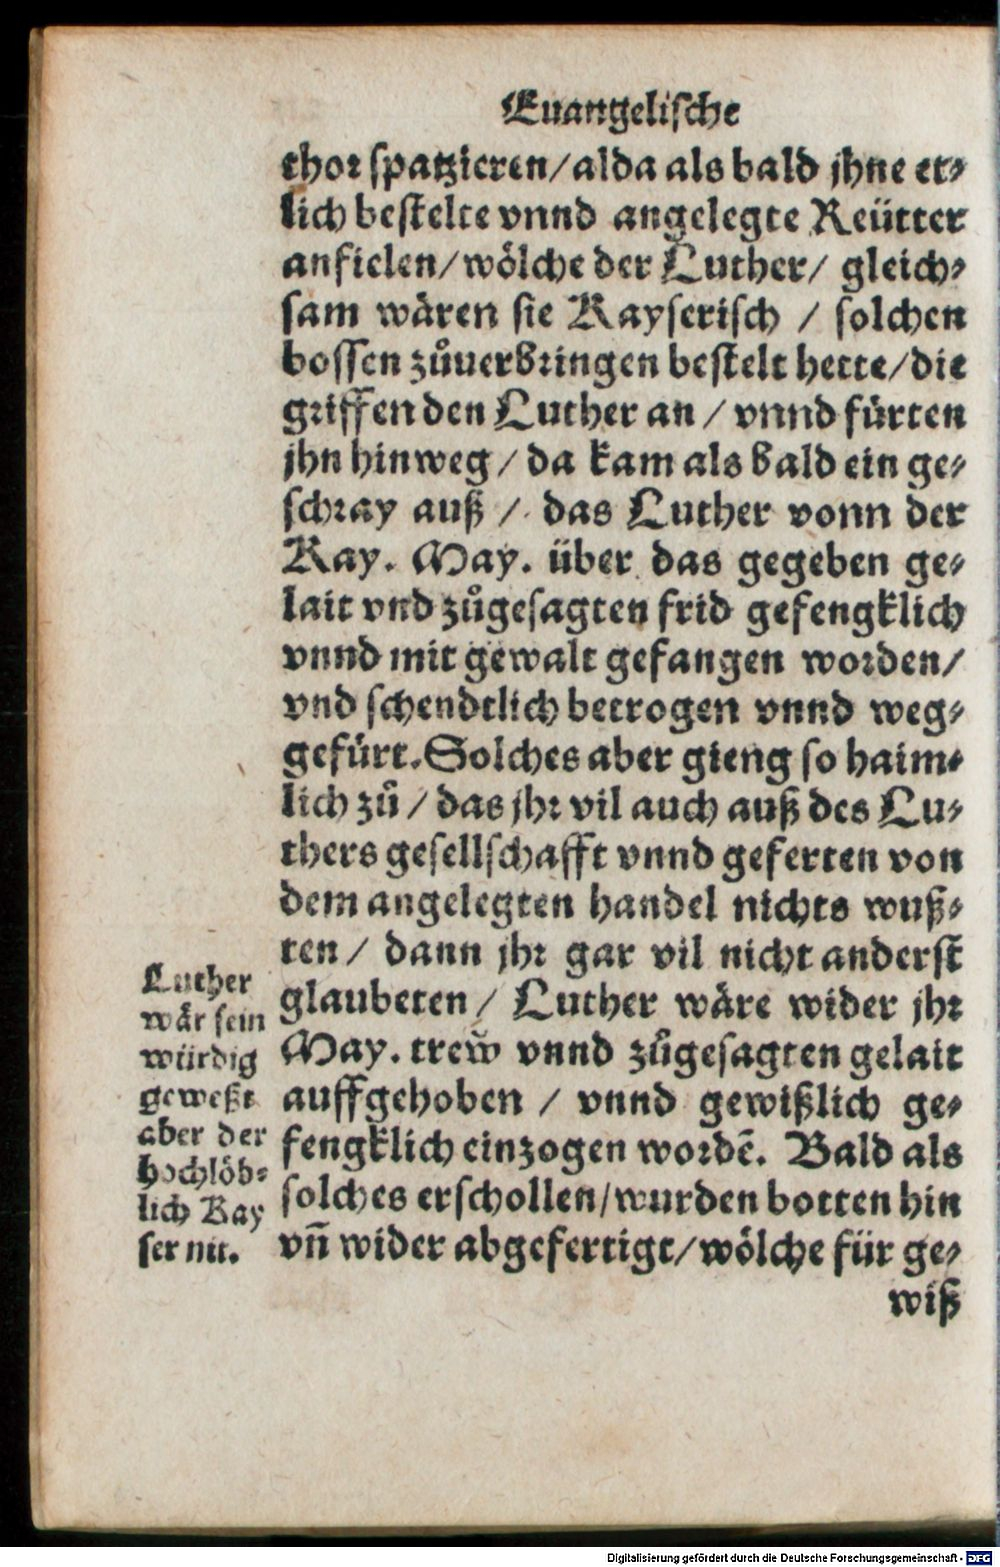 Euangelische
thor spatzieren/alda als bald jhne et⸗
lich bestelte vnnd angelegte Reütter
anfielen/wölche der Luther/ gleich⸗
sam wären sie Kayserisch / solchen
bossen zůuerbringen bestelt hette/die
griffen den Luther an / vnnd fürten
jhn hinweg / da kam als bald ein ge⸗
schray auß / das Luther vonn der
Kay. May. über das gegeben ge⸗
lait vnd zůgesagten frid gefengklich
vnnd mit gewalt gefangen worden/
vnd schendtlich betrogen vnnd weg⸗
gefürt. Solches aber gieng so haim⸗
lich zů / das jhr vil auch auß des Lu⸗
thers gesellschafft vnnd geferten von
dem angelegten handel nichts wuß⸗
ten / dann jhr gar vil nicht anderst
glaubeten / Luther wäre wider jhr
May. trew̃ vnnd zůgesagten gelait
auffgehoben / vnnd gewißlich ge⸗
fengklich einzogen wordē. Bald als
solches erschollen/wurden botten hin
vñ wider abgefertigt/wölche für ge⸗
wiß
Luther
wär sein
würdig
geweßt
aber der
hochlöb⸗
lich Kay
ser nit.
Digitalisierung gefördert durch die Deutsche Forschungsgemeinschaft - DFG